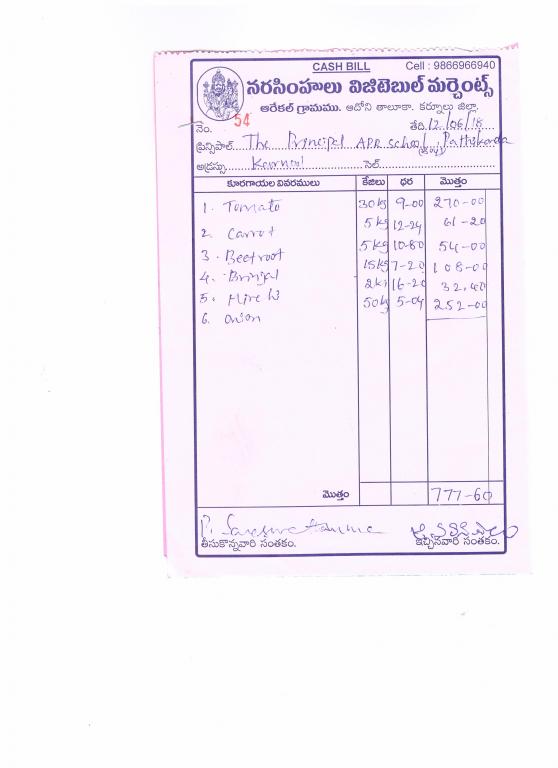 CASH BILL Cell : 9866966940
నరసింహులు విజిటెబుల్ మర్చెంట్స్
ఆరేకల్ గ్రామము. ఆదోని తాలూకా. కర్నూలు జిల్లా.
నెం. 54 తేది. 12/06/18
ప్రిన్సిపాల్. The Principal APR School Pathikonda
అడ్రస్సు. Kurnool సెల్.
కూరగాయల వివరములు కేజీలు ధర మొత్తం
1. Tomato 30kg 9-00 270-00
2. Carrot 5kg 12-24 61-20
3. Beetroot 5kg 10-80 54-00
4. Brinjal 15kg 7-20 108-00
5. 2kg 16-20 32.40
6. onion 50kg 5-04 252-00
మొత్తం 777-60
తీసుకొన్నవారి సంతకం. ఇచ్చినవారి సంతకం.